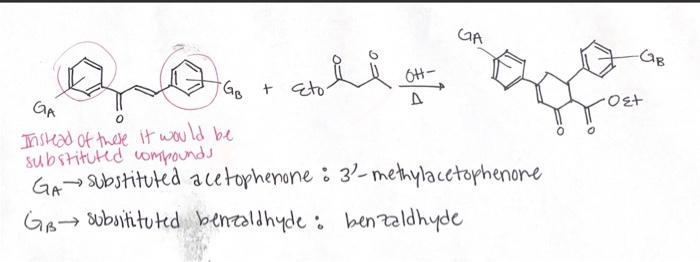 GA
GB
GA
O
GB
+
EtO
O
O
OH-
Δ
OEt
O
O
Instead of these it would be
substituted compounds
GA → substituted acetophenone : 3'-methylacetophenone
GB → subsitituted benzaldhyde : benzaldhyde